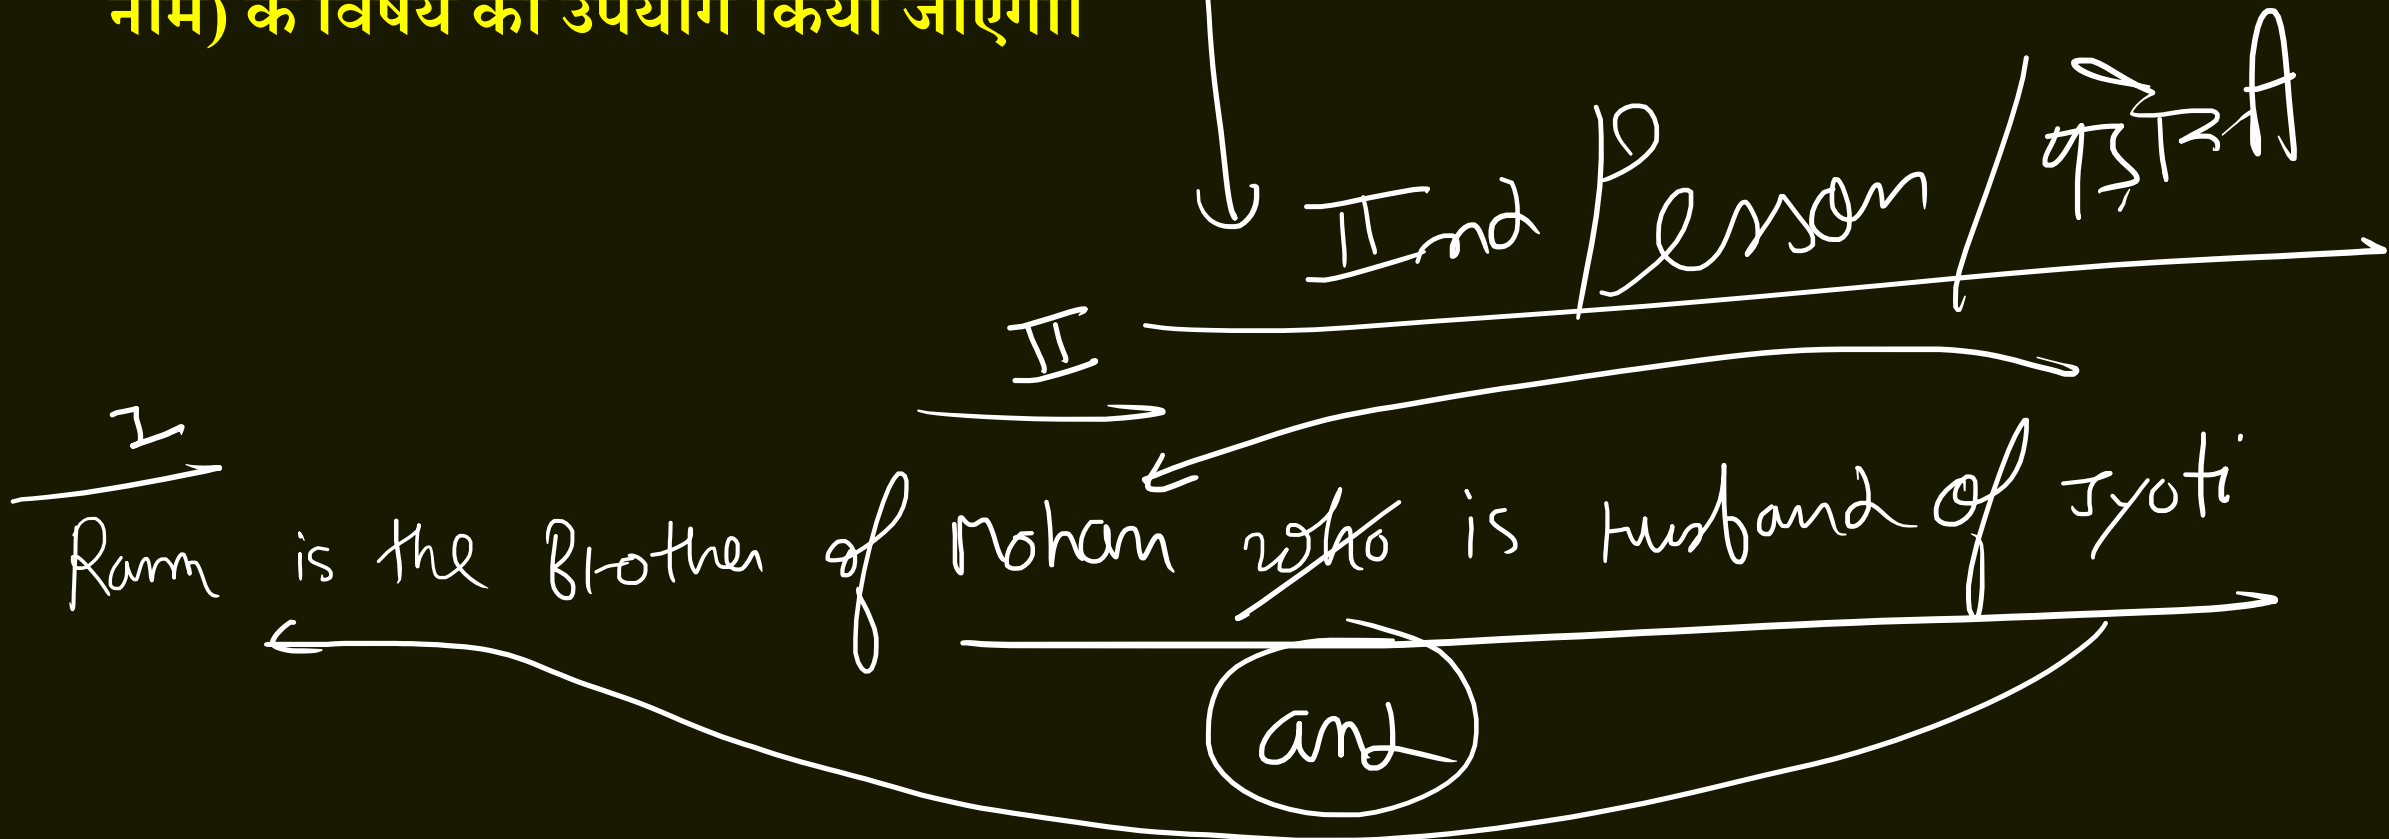 नाम) के विषय का उपयोग किया जाएगा।
IInd Person /
II
I
Ram is the Brother of Mohan who is Husband of Jyoti
and